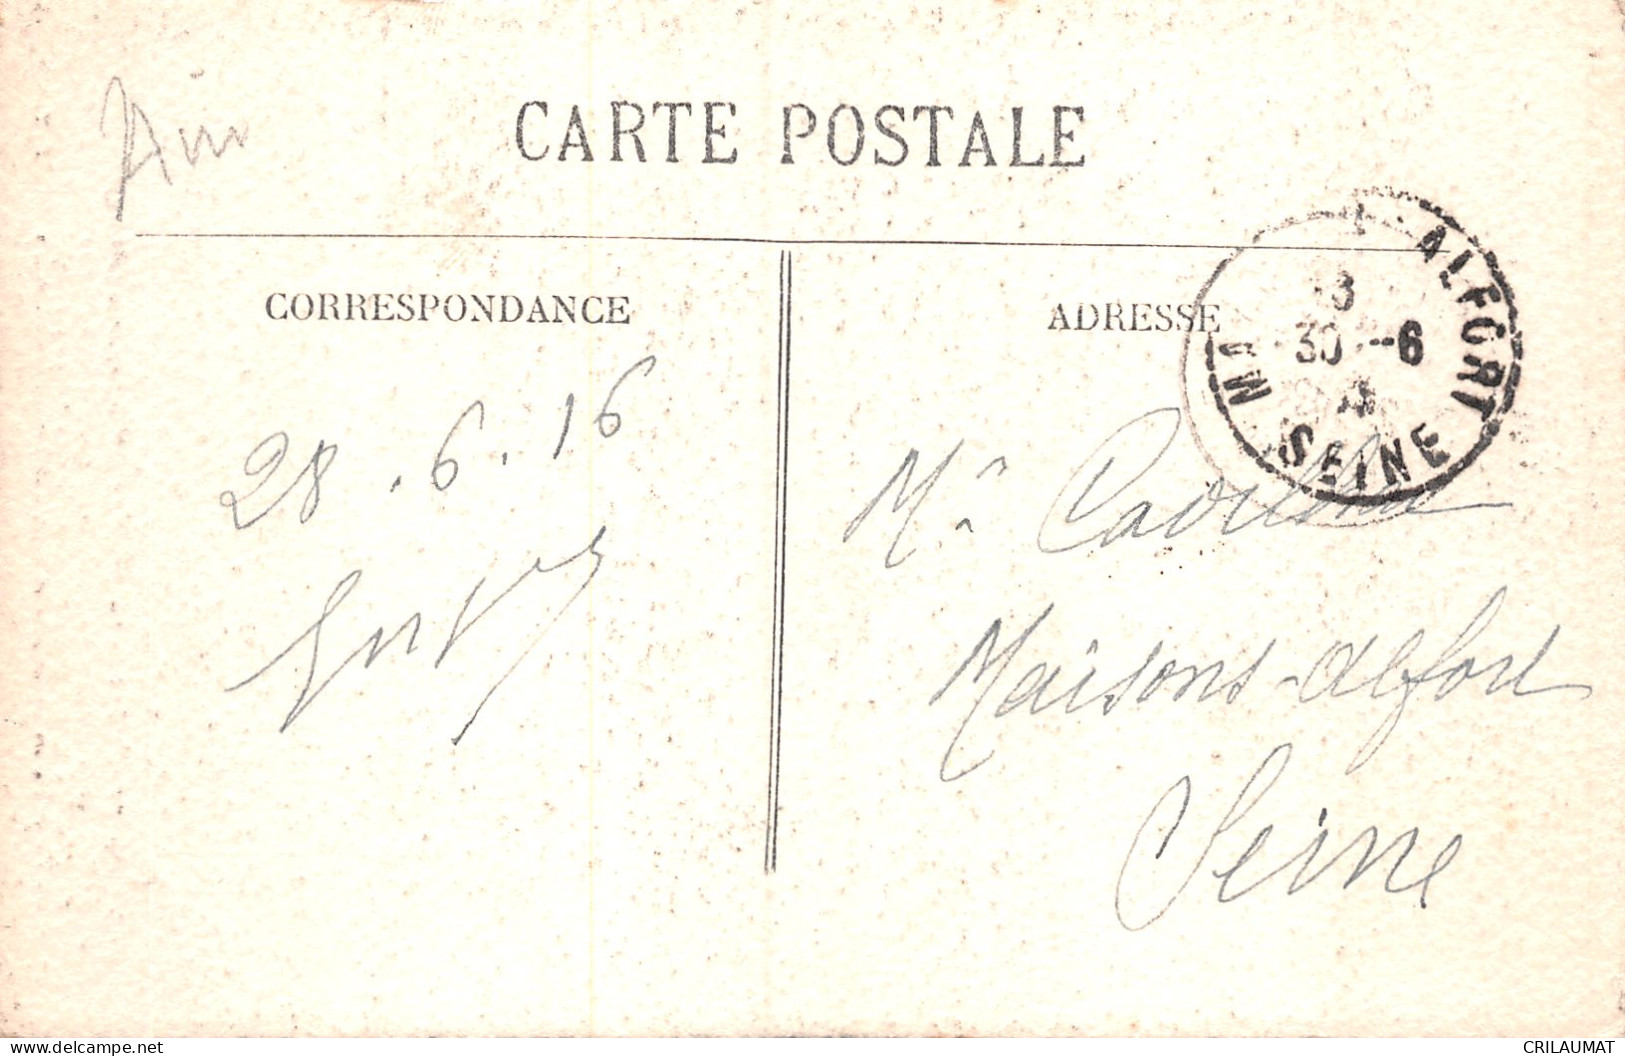 Ain
CARTE POSTALE
CORRESPONDANCE
ADRESSE
MAISONS ALFORT
30 -6
SEINE
28.6.16
Mr
Maisons-Alfort
Seine
www.delcampe.net
CRILAUMAT